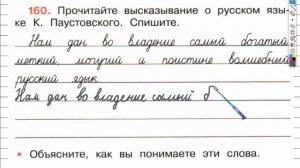 160. Прочитайте высказывание о русском язы-
ке К. Паустовского. Спишите.
Нам дан во владение самый богатый,
меткий, могучий и поистине волшебный
русский язык.
Нам дан во владение самый б
• Объясните, как вы понимаете эти слова.